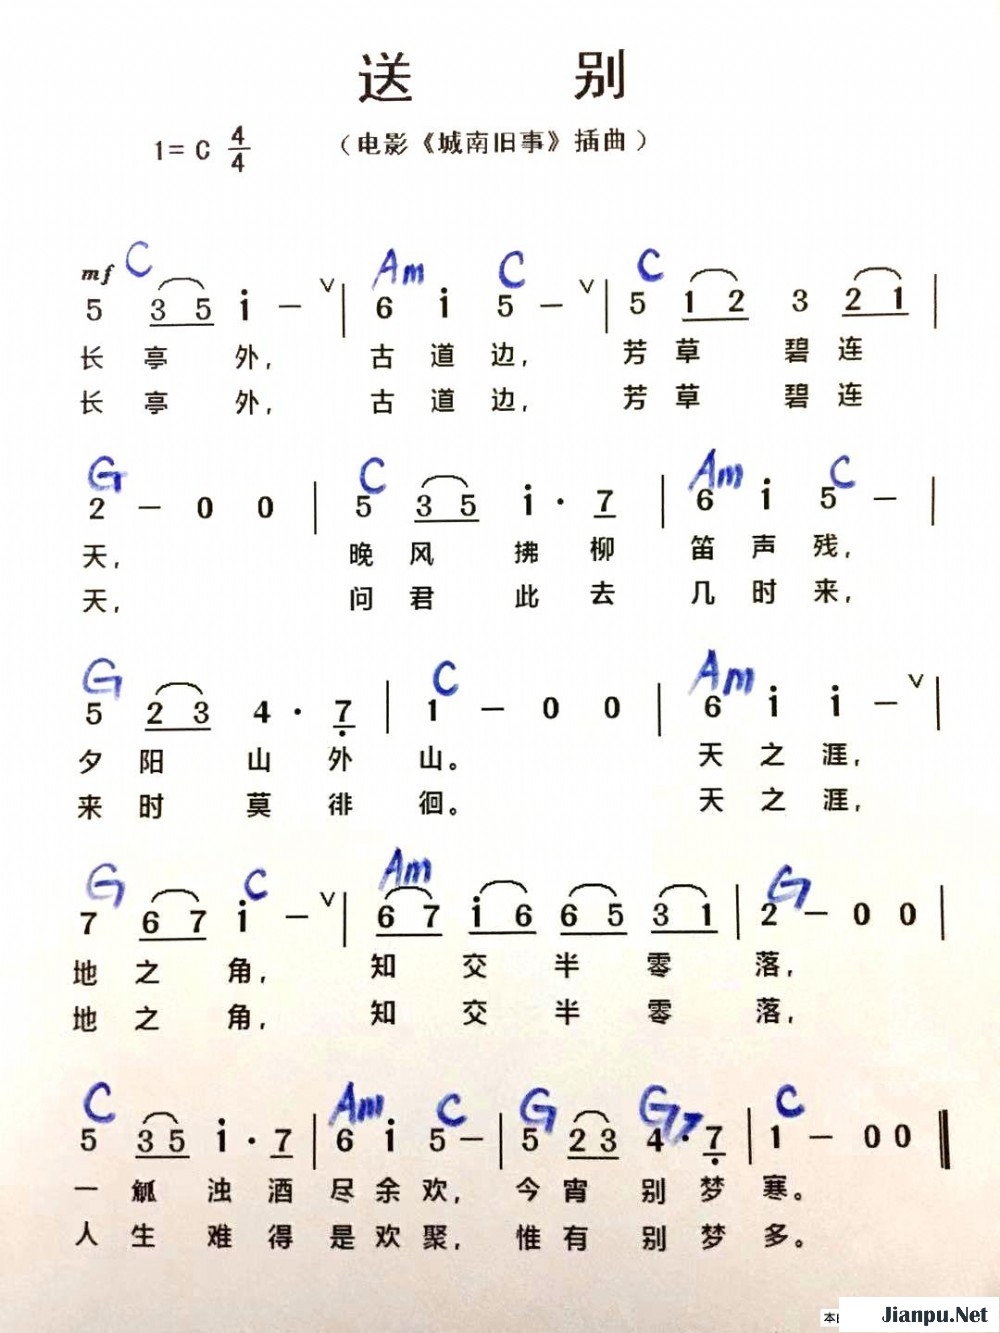 送 别
1= C 4/4 （电影《城南旧事》插曲）
C Am C C
mf 5 3 5 i – ∨ | 6 i 5 – ∨ | 5 1 2 3 2 1 |
长 亭 外， 古 道 边， 芳 草 碧 连
长 亭 外， 古 道 边， 芳 草 碧 连
G C Am C
2 – 0 0 | 5 3 5 i · 7 | 6 i 5 – |
天， 晚 风 拂 柳 笛 声 残，
天， 问 君 此 去 几 时 来，
G C Am
5 2 3 4 · 7 | 1 – 0 0 | 6 i i – ∨ |
夕 阳 山 外 山。 天 之 涯，
来 时 莫 徘 徊。 天 之 涯，
G C Am G
7 6 7 i – ∨ | 6 7 i 6 6 5 3 1 | 2 – 0 0 |
地 之 角， 知 交 半 零 落，
地 之 角， 知 交 半 零 落，
C Am C G G7 C
5 3 5 i · 7 | 6 i 5 – | 5 2 3 4 · 7 | 1 – 0 0 ‖
一 觚 浊 酒 尽 余 欢， 今 宵 别 梦 寒。
人 生 难 得 是 欢 聚， 惟 有 别 梦 多。
Jianpu.Net